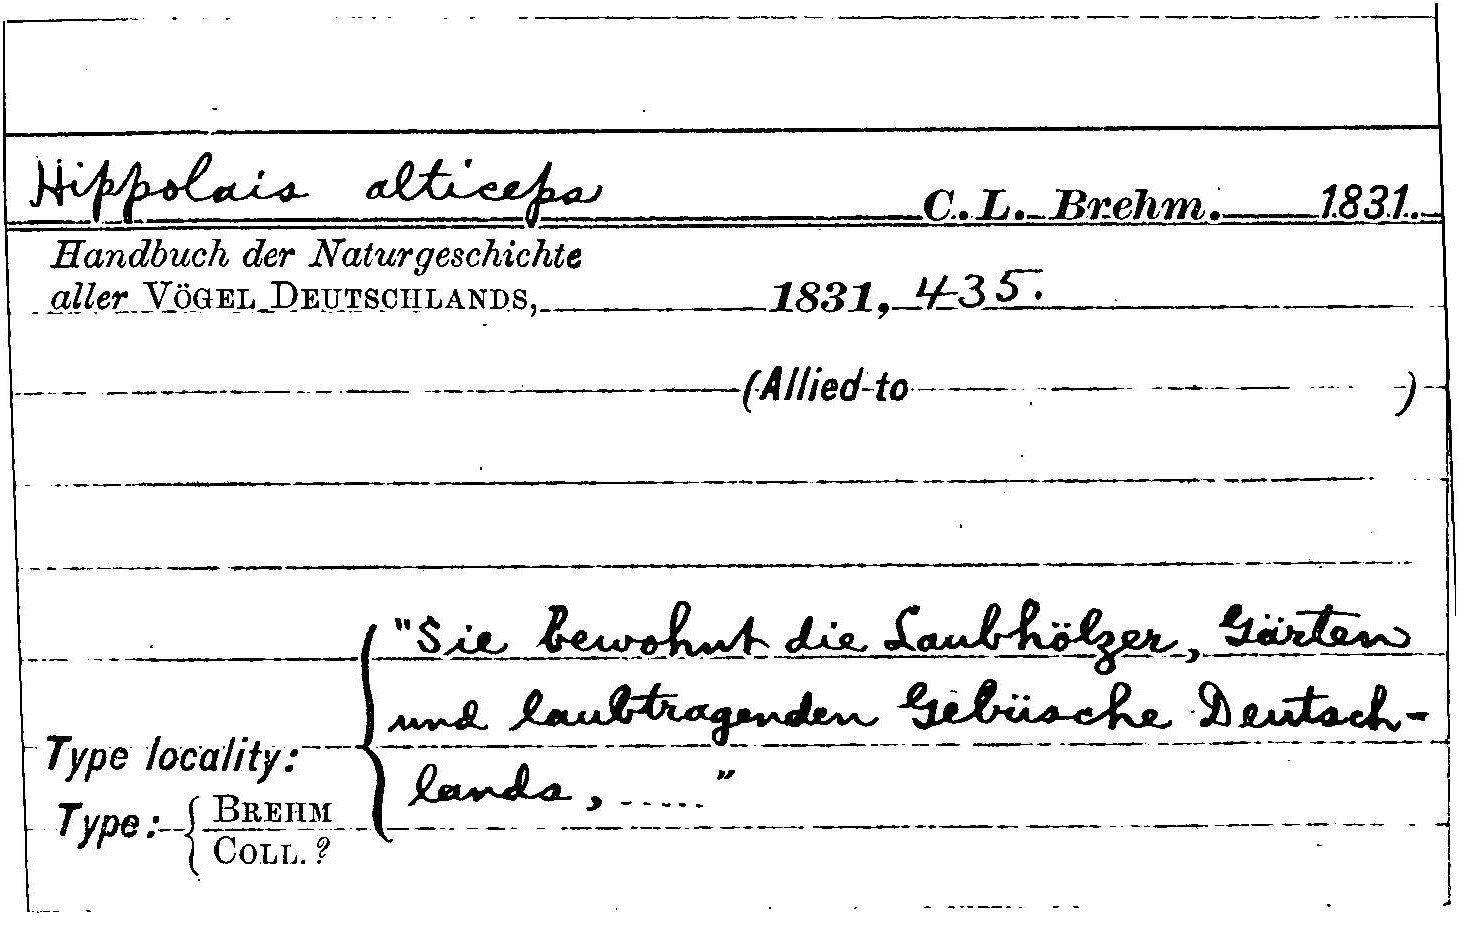 Hippolais alticeps C. L. Brehm. 1831.
Handbuch der Naturgeschichte
aller VÖGEL DEUTSCHLANDS, 1831, 435.
(Allied to )
"Sie bewohnt die Laubhölzer, Gärten
und laubtragenden Gebüsche Deutsch-
lands, ....."
Type locality:
Type: BREHM
COLL. ?